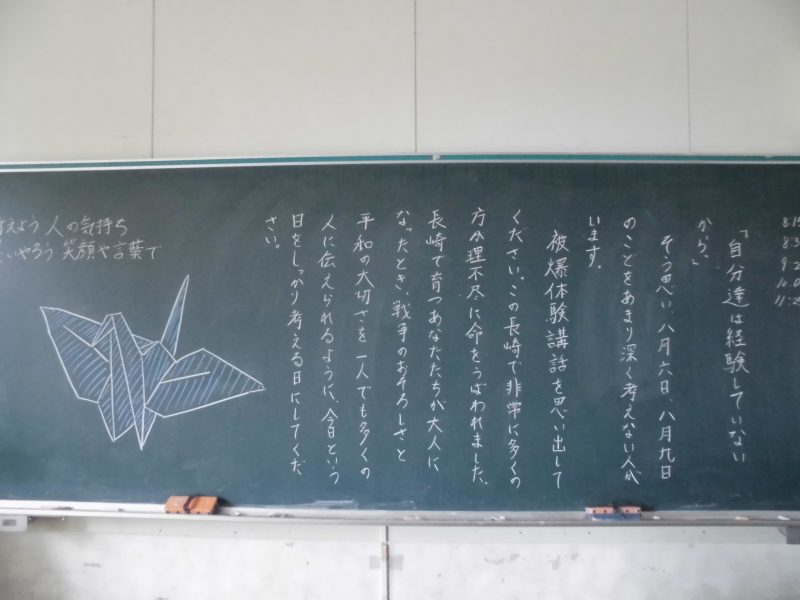 「自分達は経験していない
から。」
そう思い、八月六日、八月九日
のことをあまり深く考えない人が
います。
被爆体験講話を思い出して
ください。この長崎で非常に多くの
方が理不尽に命をうばわれました。
長崎で育つあなたたちが大人に
なったとき、戦争のおそろしさと
平和の大切さを一人でも多くの
人に伝えられるように、今日という
日をしっかり考える日にしてくだ
さい。
えよう 人の気持ち
いやろう 笑顔や言葉で